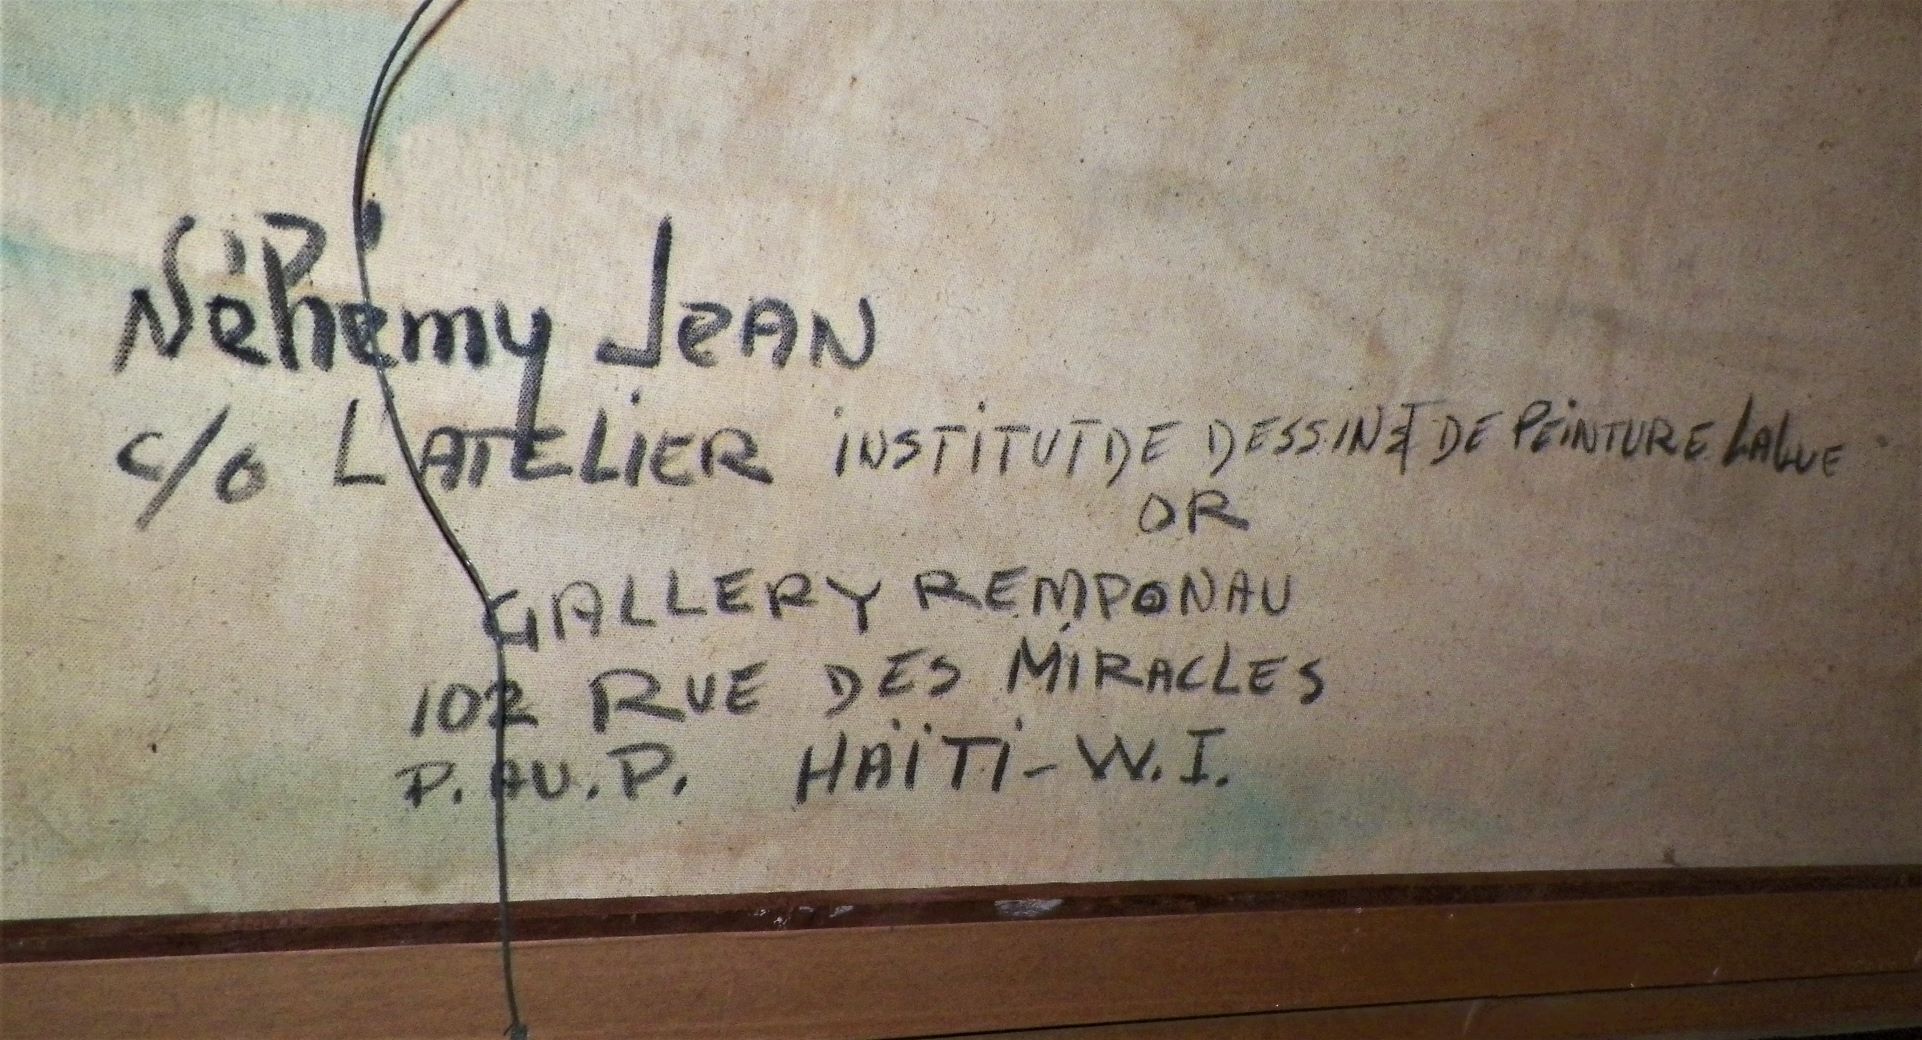 Néhémy JeAN
c/o L'ATELIER INSTITUT DE DESSIN ET DE PEINTURE LALUE
OR
GALLERY REMPONAU
102 RUE DES MIRACLES
P. AU. P. HAÏTI - W. I.